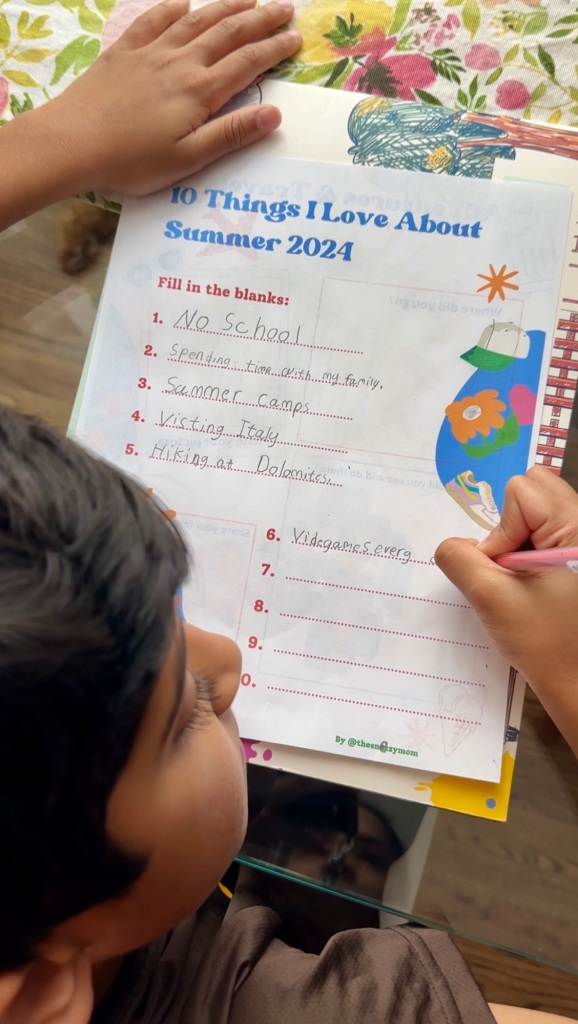 10 Things I Love About
Summer 2024
Fill in the blanks:
1. No School
2. Spending time with my family.
3. Summer camps
4. Visting Italy
5. Hiking at Dolomites.
6. Videgames everg
7.
8.
9.
0.
By @thesn
zymom
Where did you go?